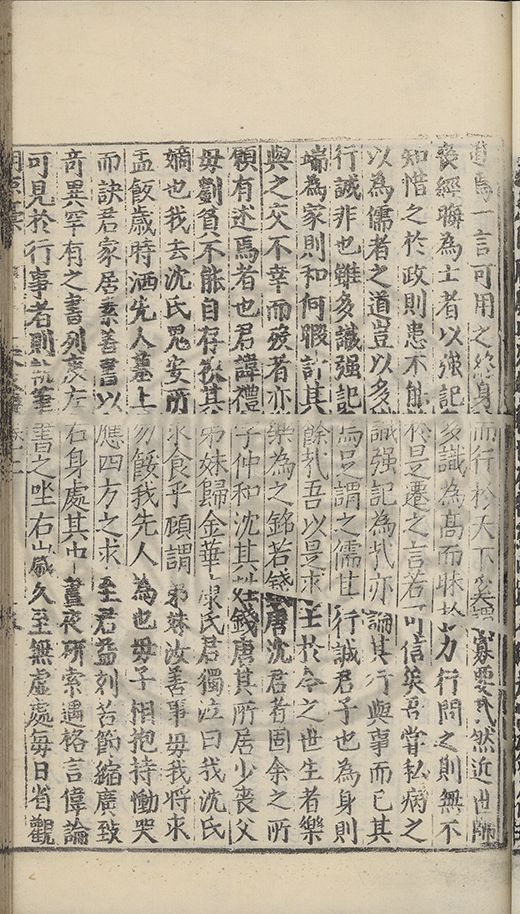 焉一言可用之終身而行於天下矣寡要哉然近世師
喪經晦為士者以強記多識為髙而昧於力行問之則無不
知惜之於政則患不能於是遷之言若可信矣吾甞私病之
以為儒者之道豈以多識强記為㢤亦論其行與事而已其
行誠非也雖多識强記焉足謂之儒其行誠君子也為身則
端為家則和何暇計其餘㢤吾以是求士於今之世生者樂
與之交不幸而殁者亦樂為之銘若錢唐沈君者固余之所
願有述焉者也君諱禮字仲和沈其姓錢唐其所居少喪父
毋劉貧不能自存攜其弟妹歸金華氏君獨泣曰我沈氏
嫡也我去沈氏鬼安所求食乎顧謂弟妹汝善事毋我將求
盂飯歳時洒先人墓上勿餒我先人為也毋子相抱持慟哭
而訣君家居至君益刻苦節縮廣致素善書以應四方之求
竒異罕有之書列庋左右身處其中晝夜研索遇格言偉論
可見於行事者則執筆書之坐右歲久至無虚處每日省觀